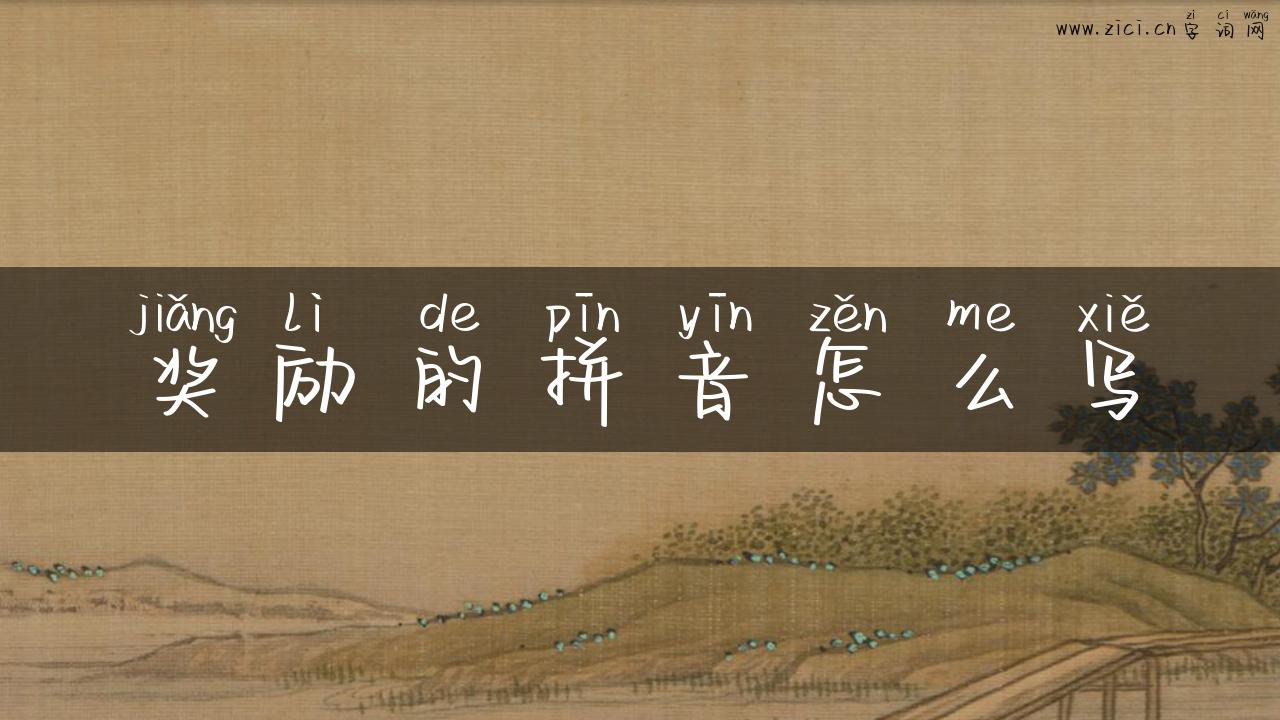 zì cí wǎng
www.zici.cn字词网
jiǎng lì de pīn yīn zěn me xiě
奖励的拼音怎么写